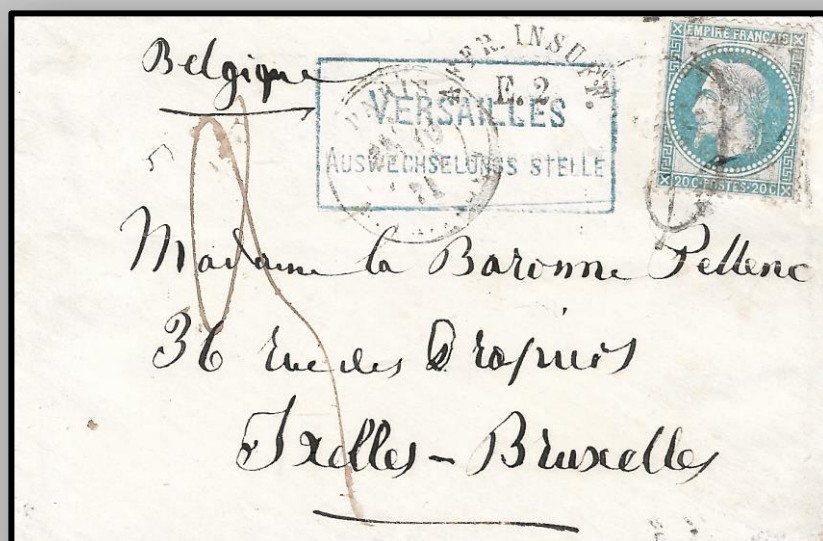 Belgique
AFFR. INSUFF.
E.2
PARIS
71
VERSAILLES
AUSWECHSELUNGS STELLE
EMPIRE FRANCAIS
20C·POSTES·20C
Madame la Baronne Pellenc
36 rue des
Ixelles - Bruxelles